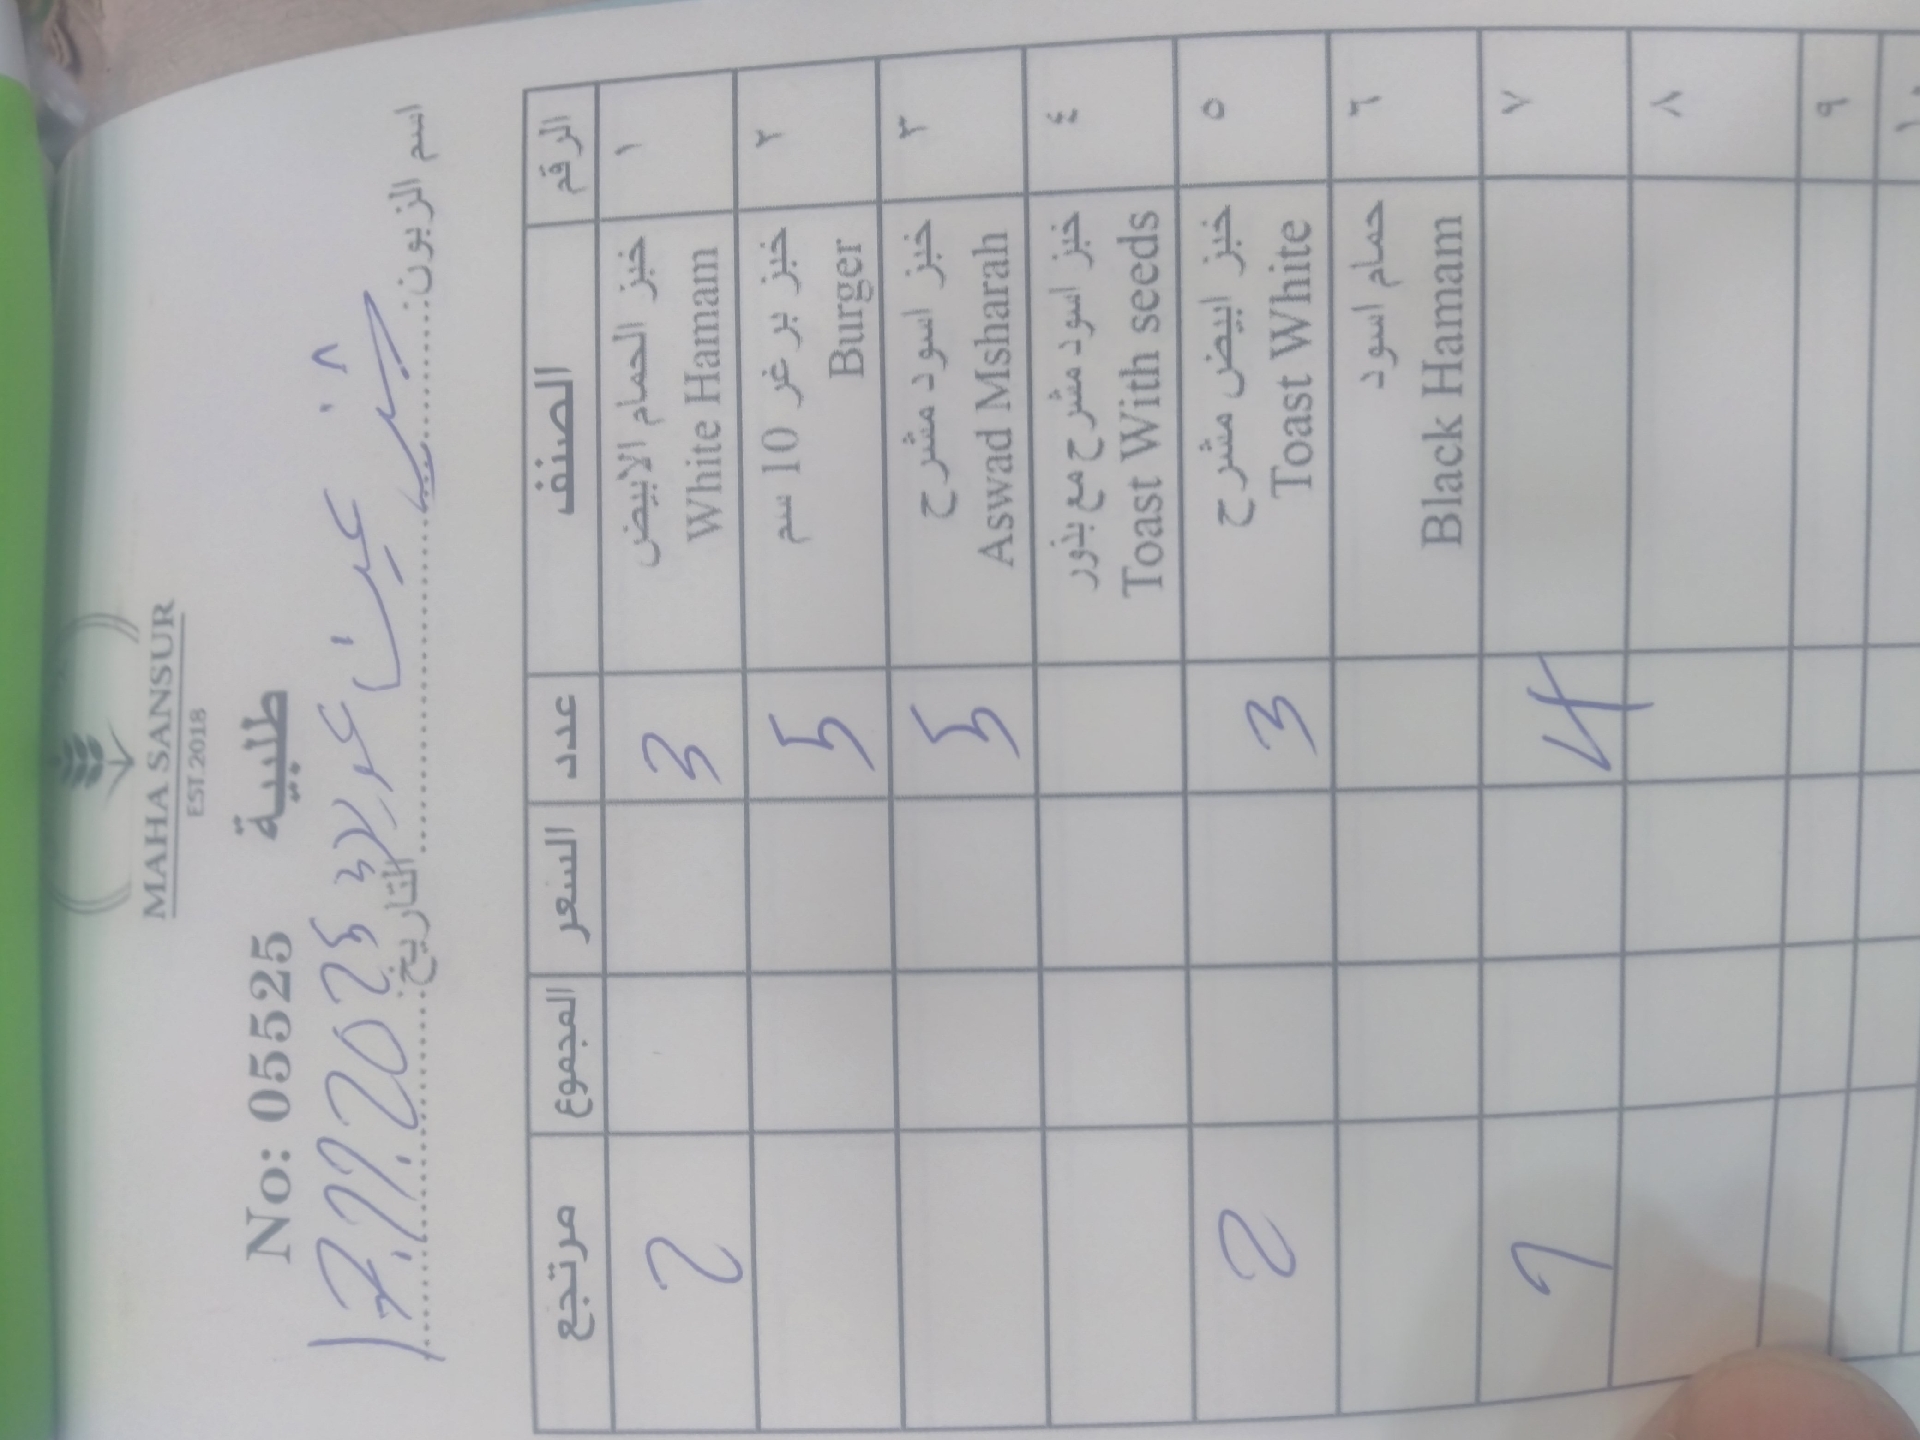 MAHA SANSUR
EST.2018
No: 05525 طلبية
اسم الزبون: عين عريك
التاريخ: 17.11.2025
الرقم الصنف عدد السعر المجموع مرتجع
١ خبز الحمام الابيض 3 2
White Hamam
٢ خبز برغر 10 سم 5
Burger
٣ خبز اسود مشرح 5
Aswad Msharah
٤ خبز اسود مشرح مع بذور
Toast With seeds
٥ خبز ابيض مشرح 3 2
Toast White
٦ حمام اسود
Black Hamam
٧ 4 1
٨
٩
١٠